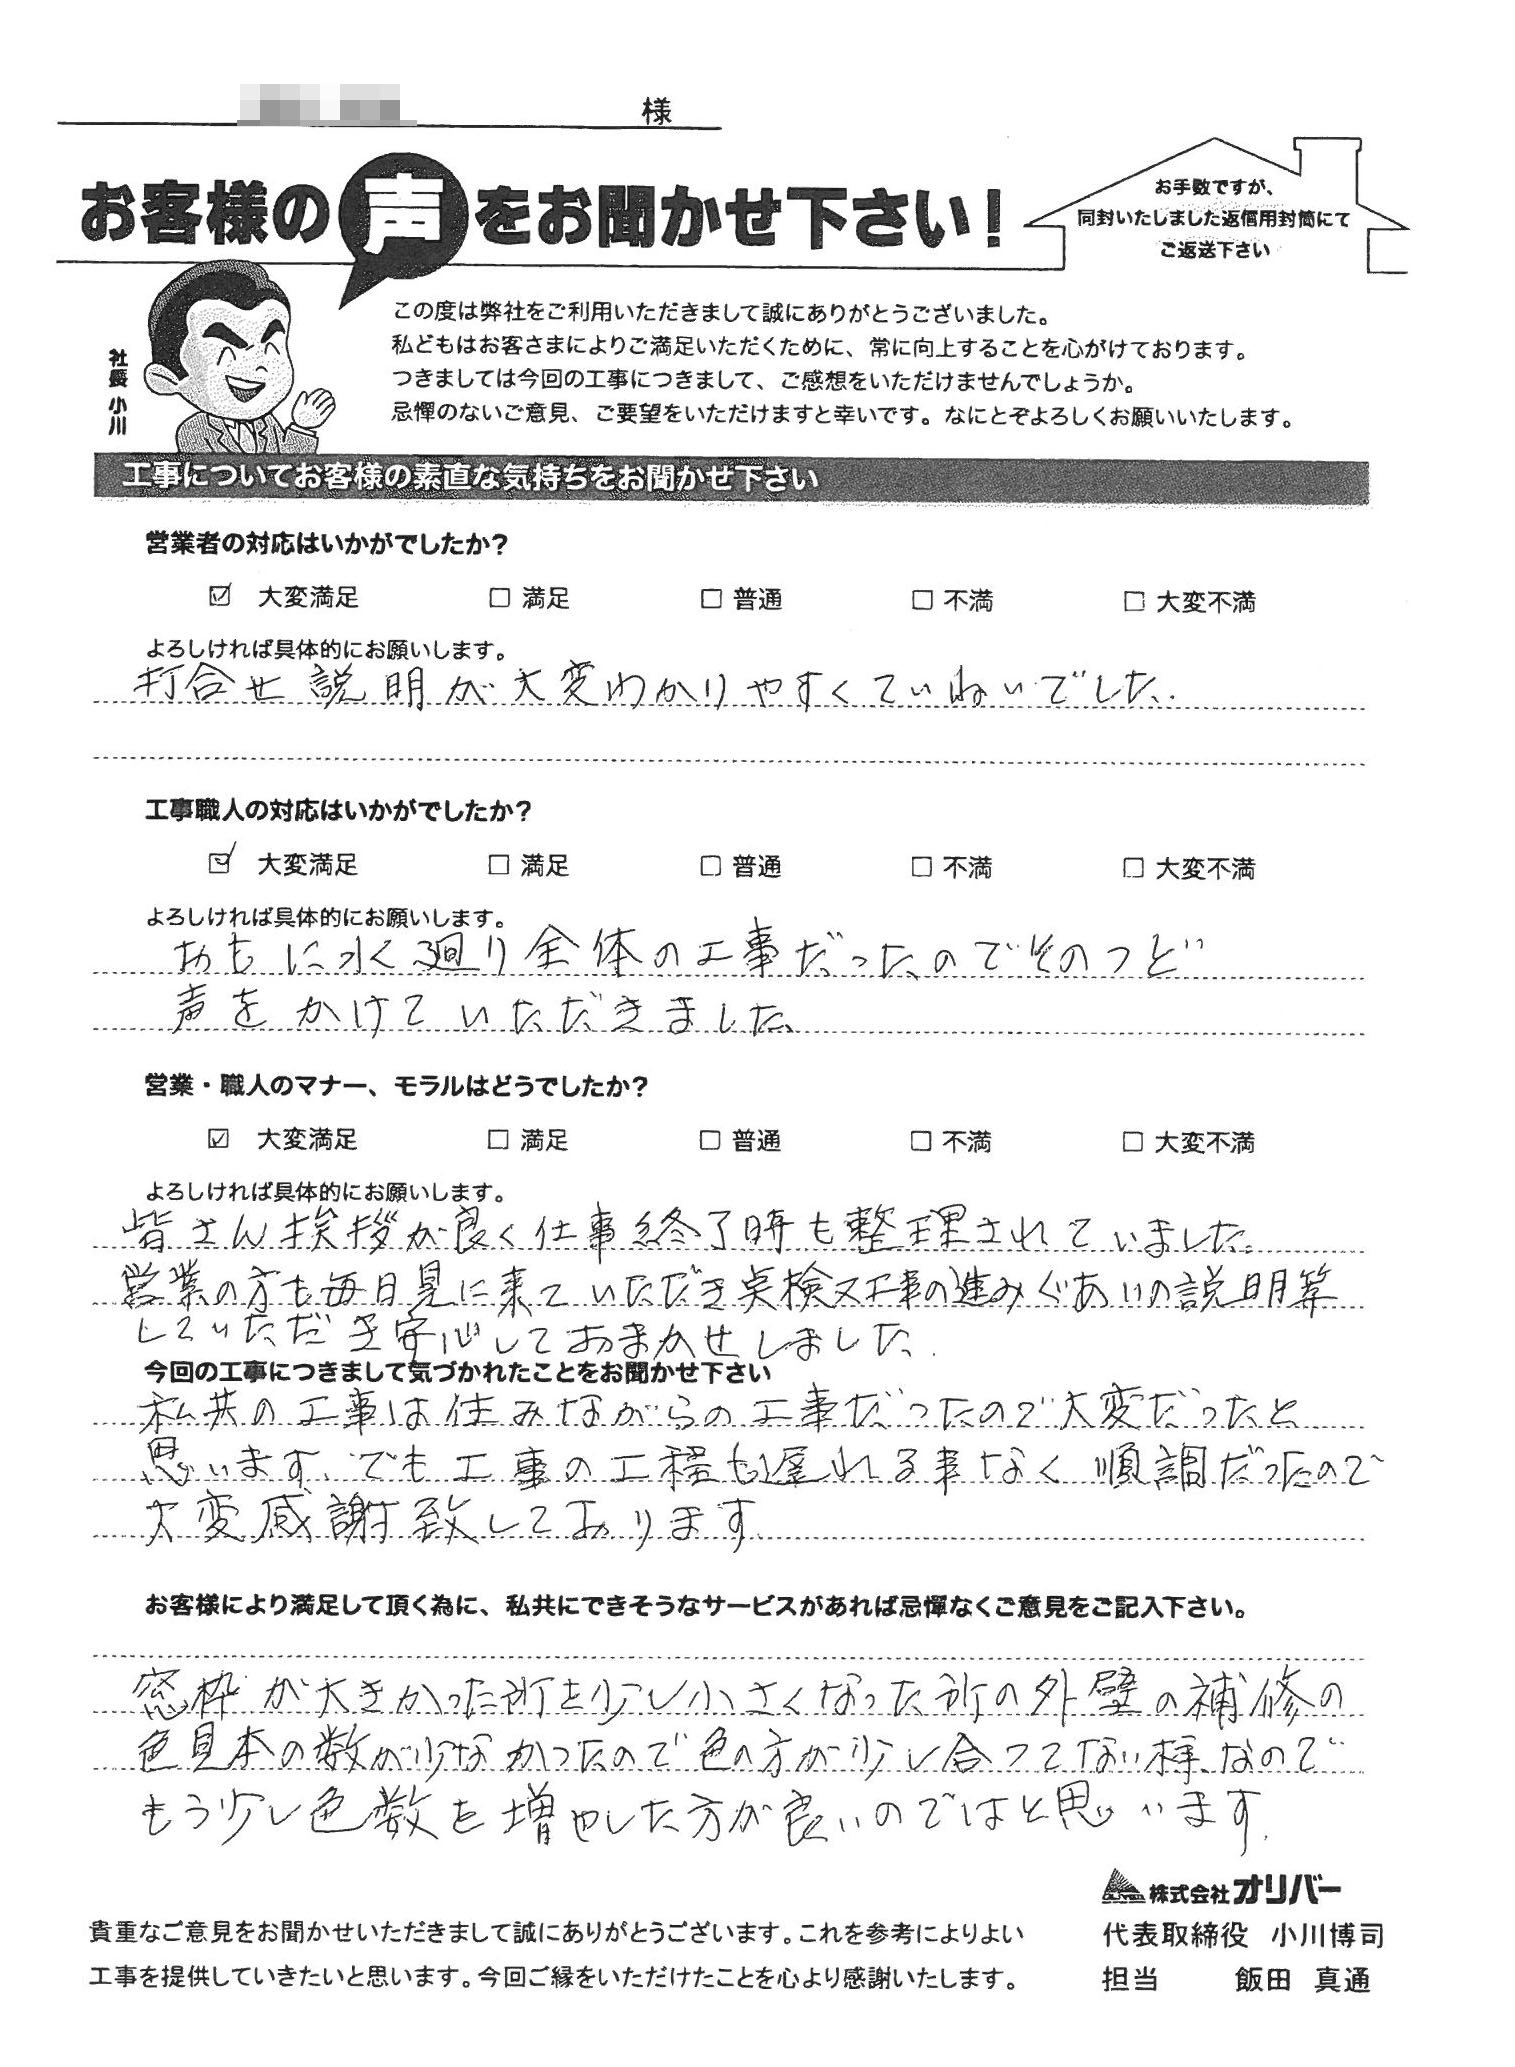 様
お客様の声をお聞かせ下さい！
お手数ですが、
同封いたしました返信用封筒にて
ご返送下さい
社長 小川
この度は弊社をご利用いただきまして誠にありがとうございました。
私どもはお客さまによりご満足いただくために、常に向上することを心がけております。
つきましては今回の工事につきまして、ご感想をいただけませんでしょうか。
忌憚のないご意見、ご要望をいただけますと幸いです。なにとぞよろしくお願いいたします。
工事についてお客様の素直な気持ちをお聞かせ下さい
営業者の対応はいかがでしたか？
☑ 大変満足 □ 満足 □ 普通 □ 不満 □ 大変不満
よろしければ具体的にお願いします。
打合せ説明が大変わかりやすくていねいでした.
工事職人の対応はいかがでしたか？
☑ 大変満足 □ 満足 □ 普通 □ 不満 □ 大変不満
よろしければ具体的にお願いします。
おもに水く廻り全体の工事だったのでそのつど
声をかけていただきました
営業・職人のマナー、モラルはどうでしたか？
☑ 大変満足 □ 満足 □ 普通 □ 不満 □ 大変不満
よろしければ具体的にお願いします。
皆さん挨拶が良く仕事終了時も整理されていました.
営業の方も毎日見に来ていただき点検又工事の進みぐあいの説明等
していただき安心しておまかせしました.
今回の工事につきまして気づかれたことをお聞かせ下さい
私共の工事は住みながらの工事だったので大変だったと
思います.でも工事の工程も遅れる事なく順調だったので
大変感謝致しております.
お客様により満足して頂く為に、私共にできそうなサービスがあれば忌憚なくご意見をご記入下さい。
窓枠が大きかった所を少し小さくなった所の外壁の補修の
色見本の数が少なかったので色の方が少し合ってない様なので
もう少し色数を増やした方が良いのではと思います.
株式会社オリバー
貴重なご意見をお聞かせいただきまして誠にありがとうございます。これを参考によりよい
工事を提供していきたいと思います。今回ご縁をいただけたことを心より感謝いたします。
代表取締役 小川博司
担当 飯田 真通